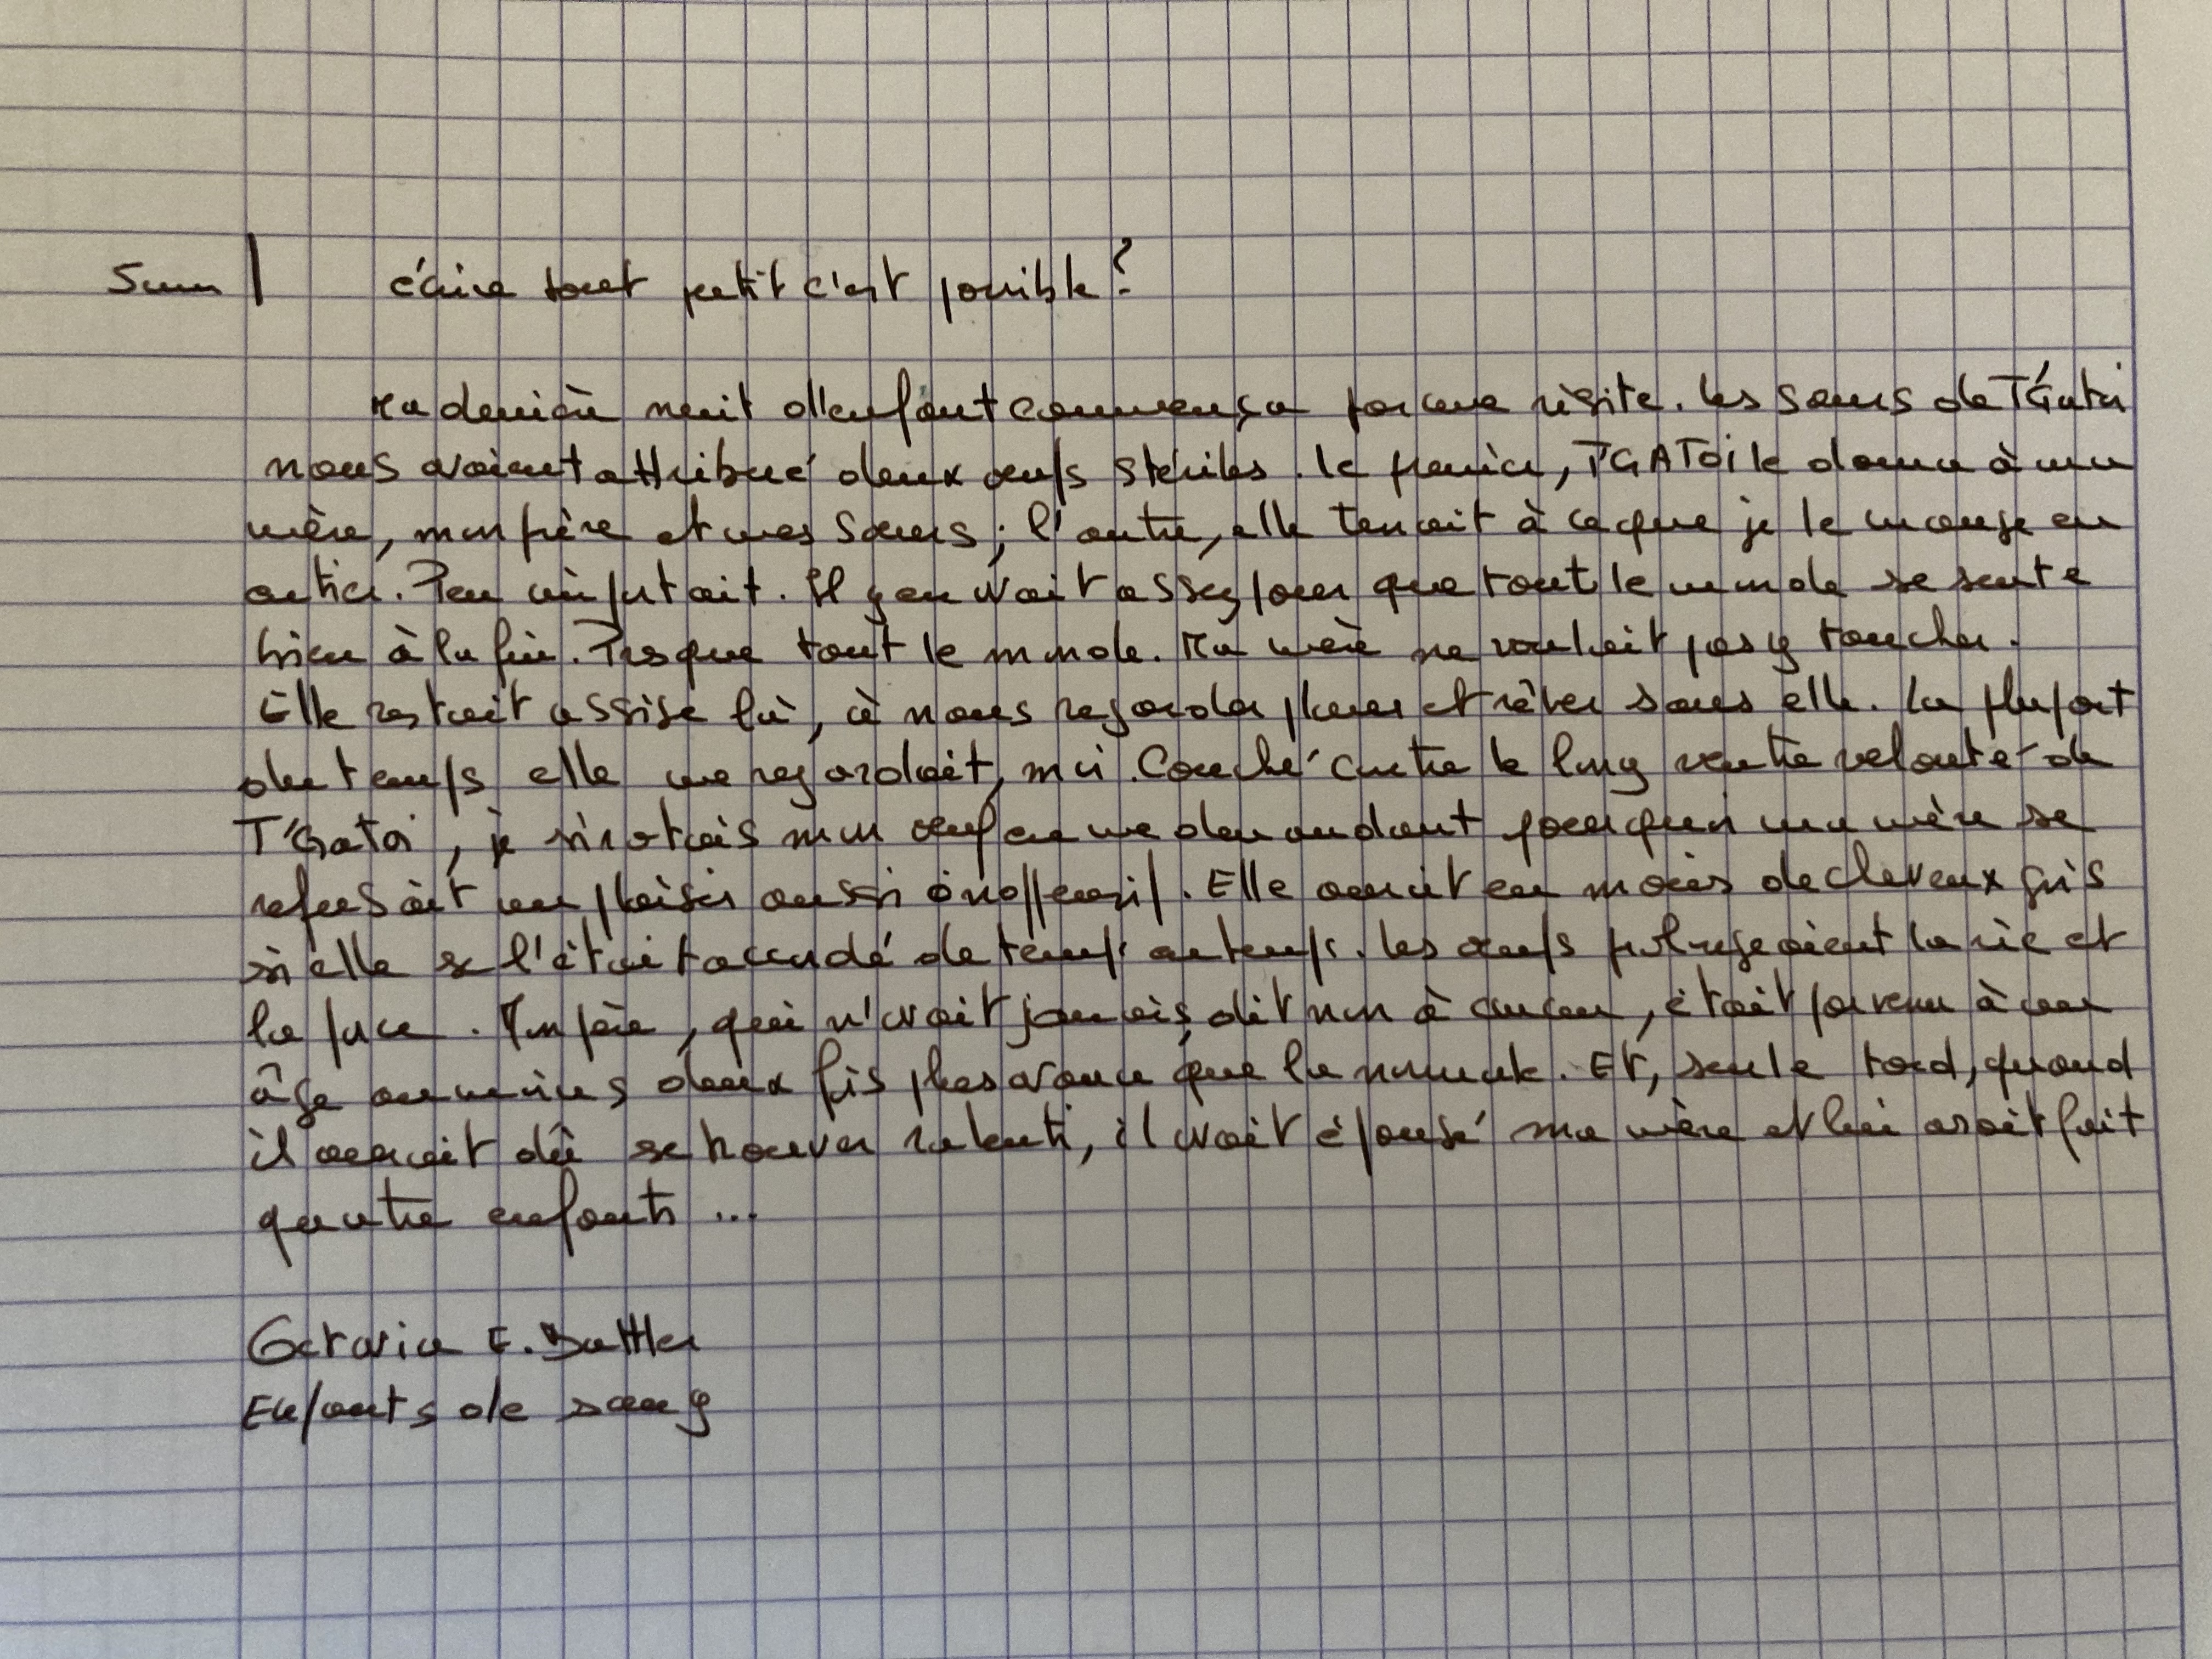 5mm | écrire tout petit c'est possible ?
Ma dernière nuit d'enfant commença par une visite. Les sœurs de T'Gatoi
nous avaient attribué deux œufs stériles. Le premier, T'GATOi le donna à ma
mère, mon frère et mes sœurs ; l'autre, elle tenait à ce que je le mange en
entier. Peu importait. Il y en avait assez pour que tout le monde se sente
bien à la fin. Presque tout le monde. Ma mère ne voulait pas y toucher.
Elle restait assise là, à nous regarder planer et rêver sans elle. La plupart
du temps elle me regardait, moi. Couché contre le long ventre velouté de
T'Gatoi, je sirotais mon œuf en me demandant pourquoi ma mère se
refusait un plaisir aussi inoffensif. Elle aurait eu moins de cheveux gris
si elle se l'était accordé de temps en temps. Les œufs prolongeaient la vie et
la force. Mon père, qui n'avait jamais dit non à aucun, était parvenu à un
âge au moins deux fois plus avancé que la normale. Et, sur le tard, quand
il aurait dû se trouver ralenti, il avait épousé ma mère et lui avait fait
quatre enfants ...
Octavia E. Buttler
Enfants de sang